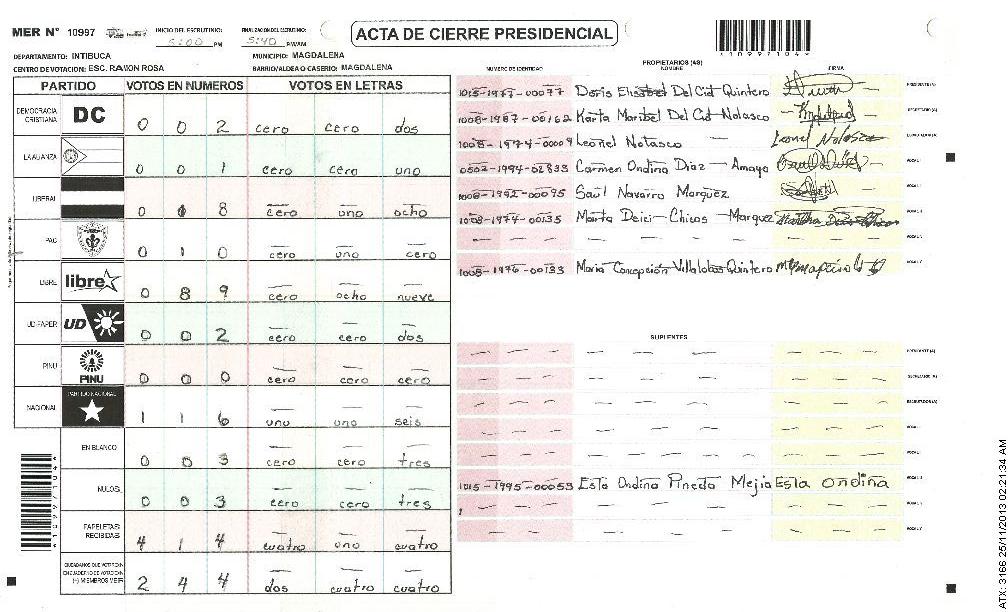 MER N° 10997 INICIO DEL ESCRUTINIO: 5:00 PM FINALIZACION DEL ESCRUTINIO: 5:40 PM/AM ACTA DE CIERRE PRESIDENCIAL 10997104
DEPARTAMENTO: INTIBUCA MUNICIPIO: MAGDALENA
CENTRO DE VOTACION: ESC. RAMON ROSA BARRIO/ALDEA O CASERIO: MAGDALENA
PARTIDO VOTOS EN NUMEROS VOTOS EN LETRAS
DEMOCRACIA CRISTIANA DC 0 0 2 cero cero dos
LA ALIANZA 0 0 1 cero cero uno
LIBERAL 0 1 8 cero uno ocho
PAC 0 1 0 cero uno cero
LIBRE libre 0 8 9 cero ocho nueve
UD-FAPER UD 0 0 2 cero cero dos
PINU PINU 0 0 0 cero cero cero
NACIONAL PARTIDO NACIONAL 1 1 6 uno uno seis
EN BLANCO 0 0 3 cero cero tres
NULOS 0 0 3 cero cero tres
PAPELETAS RECIBIDAS 4 1 4 cuatro uno cuatro
CIUDADANOS QUE VOTARON EN CUADERNO DE VOTACION (+) MIEMBROS MER 2 4 4 dos cuatro cuatro
10997104
PROPIETARIOS (AS)
NUMERO DE IDENTIDAD NOMBRE FIRMA
1015-1977-00077 Doris Elisabel Del Cid Quintero PRESIDENTE (A)
1008-1987-00162 Karla Maribel Del Cid Nolasco SECRETARIO (A)
1008-1974-00009 Leonel Nolasco Leonel Nolasco
0502-1994-02833 Carmen Ondina Diaz Amaya VOCAL I
1008-1992-00095 Saúl Navarro Marquez
1008-1974-00135 Marta Deici Chicas Marquez
1008-1976-00133 Maria Concepción Villalobos Quintero VOCAL V
SUPLENTES
PRESIDENTE (A)
SECRETARIO (A)
ESCRUTADOR (A)
1015-1995-00053 Esta Ondina Pineda Mejia Esta ondina
ATX: 3166 25/11/2013 02:21:34 AM